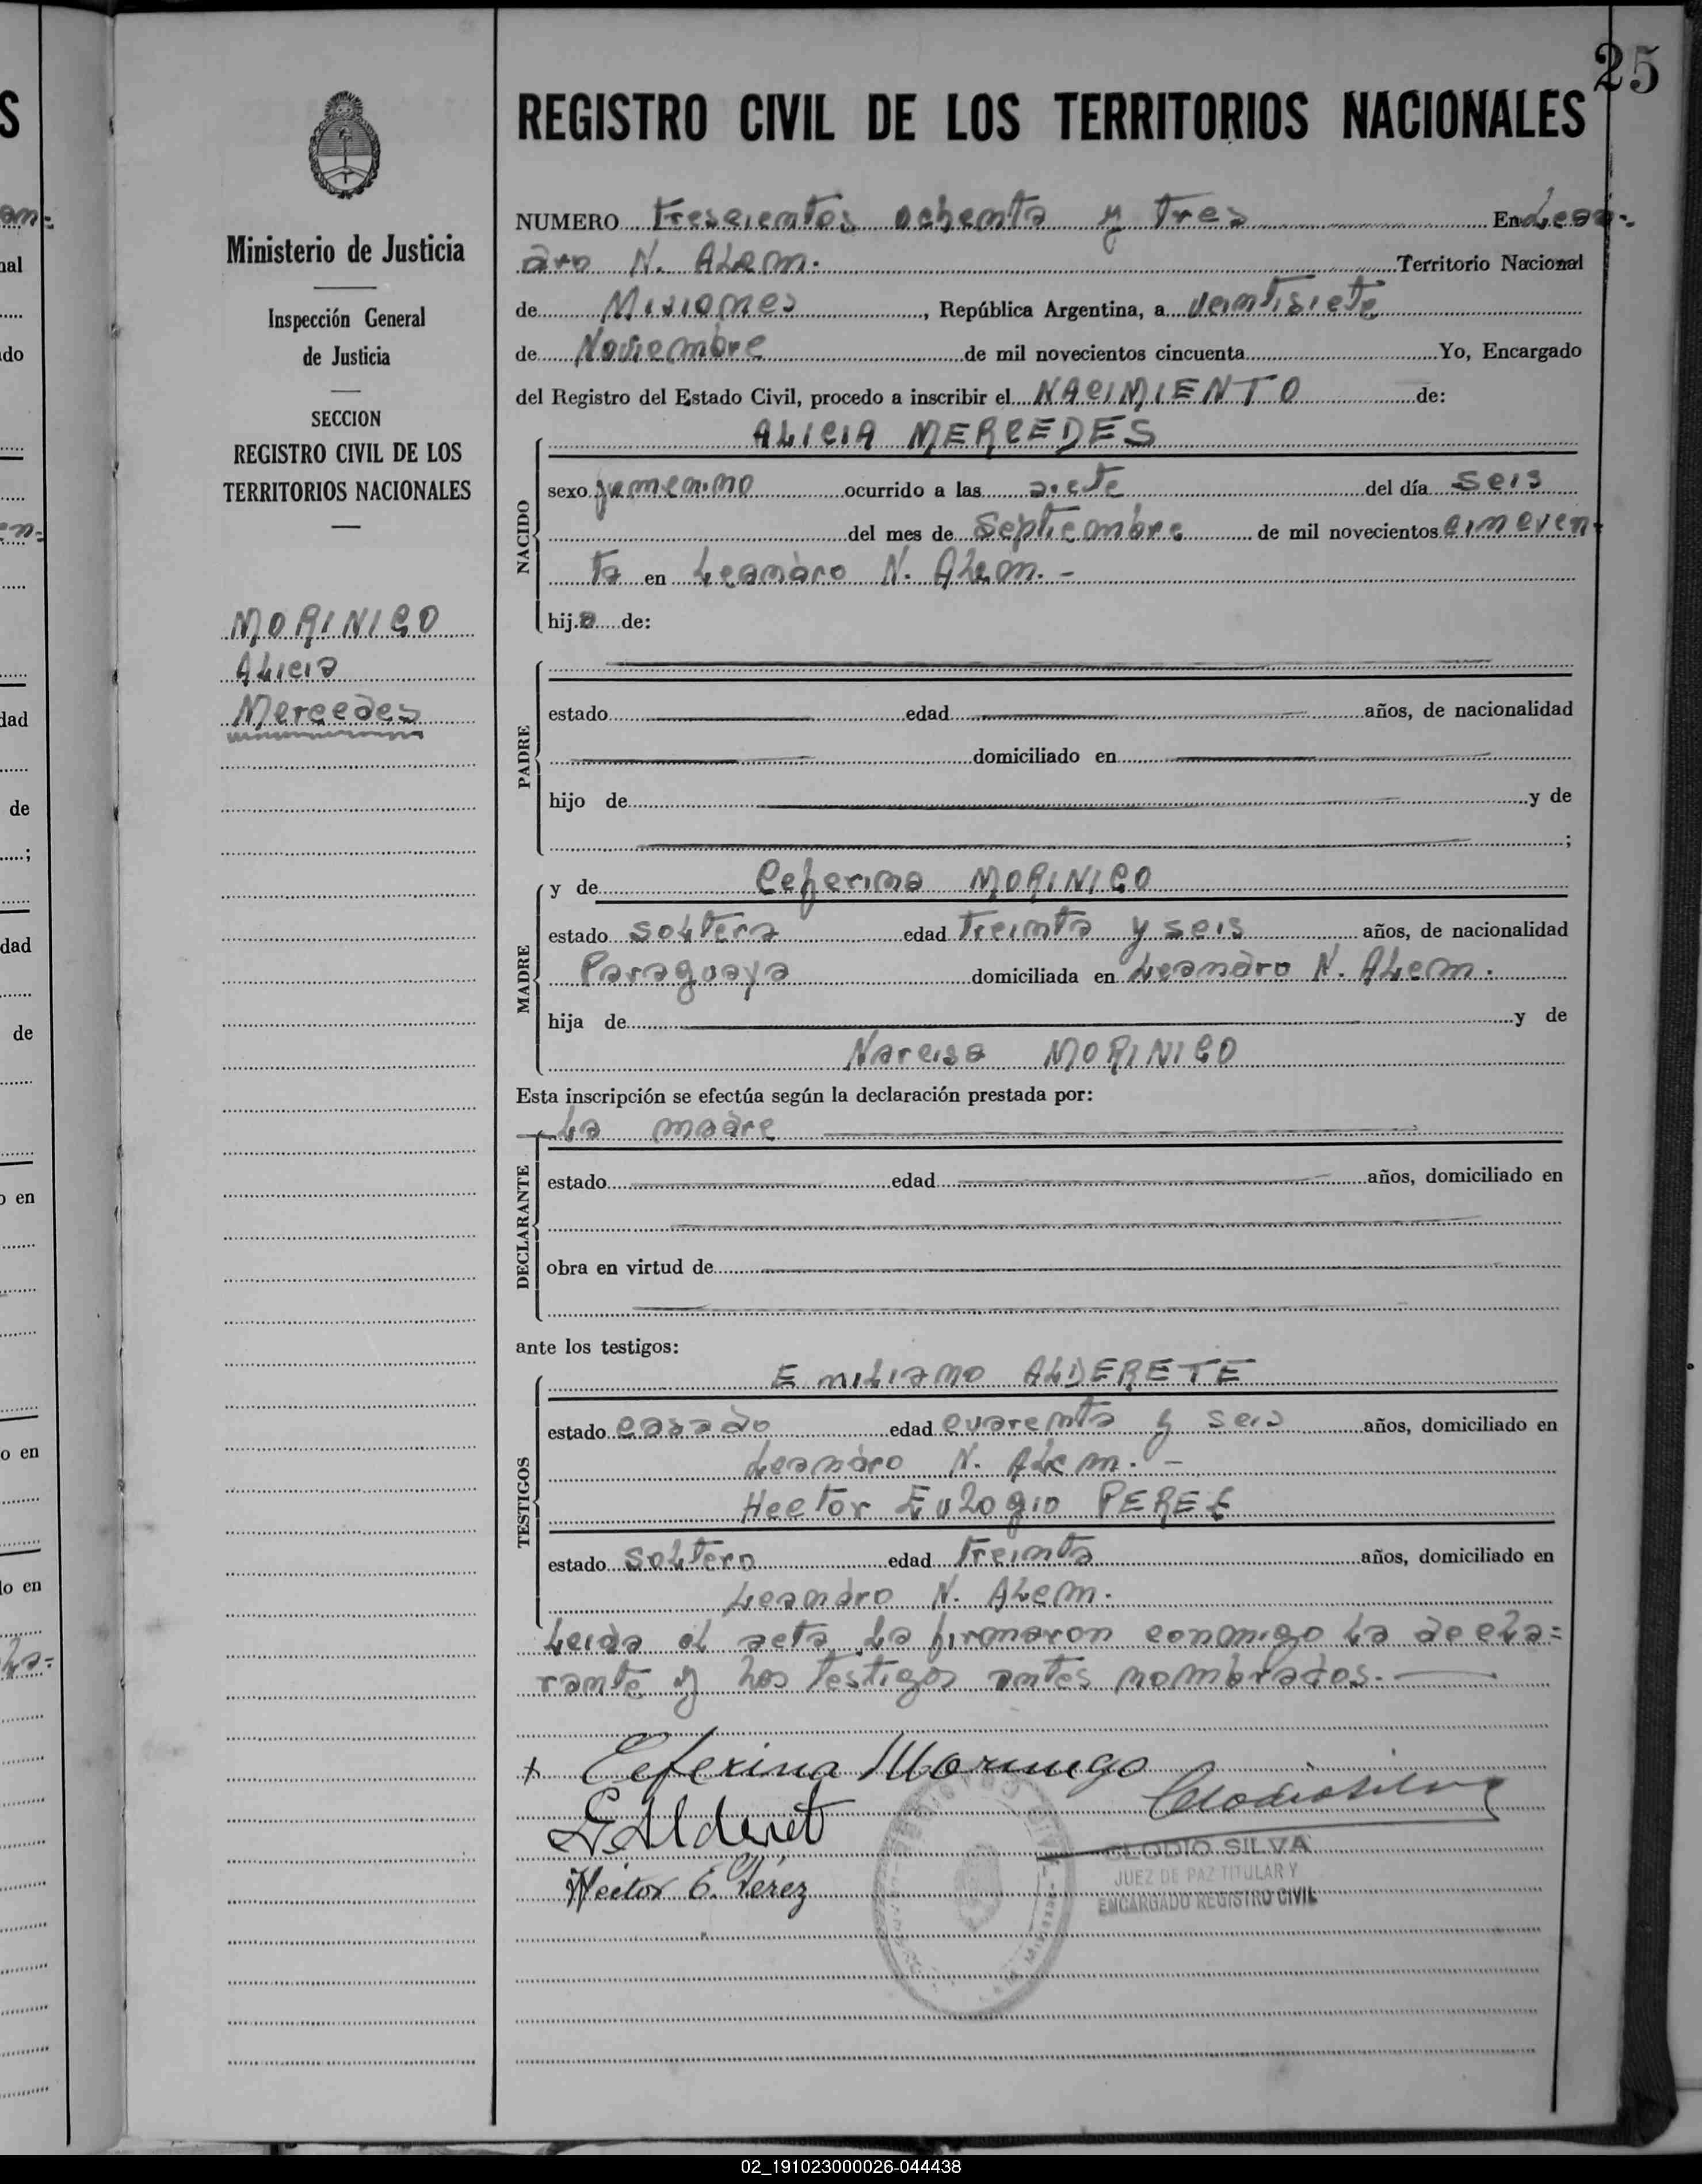 25
REGISTRO CIVIL DE LOS TERRITORIOS NACIONALES
Ministerio de Justicia
Inspección General
de Justicia
SECCION
REGISTRO CIVIL DE LOS
TERRITORIOS NACIONALES
MORINIGO
Alicia
Mercedes
NUMERO trescientos ochenta y tres En Lean-
dro N. Alem. Territorio Nacional
de Misiones, República Argentina, a veintisiete
de Noviembre de mil novecientos cincuenta Yo, Encargado
del Registro del Estado Civil, procedo a inscribir el NACIMIENTO de:
NACIDO
ALICIA MERCEDES
sexo femenino ocurrido a las siete del día seis
del mes de Septiembre de mil novecientos cincuen-
ta en Leandro N. Alem. -
hija de:
PADRE
estado edad años, de nacionalidad
domiciliado en
hijo de y de
;
MADRE
y de Ceferina MORINIGO
estado soltera edad treinta y seis años, de nacionalidad
Paraguaya domiciliada en Leandro N. Alem.
hija de y de
Narcisa MORINIGO
Esta inscripción se efectúa según la declaración prestada por:
DECLARANTE
La madre
estado edad años, domiciliado en
obra en virtud de
ante los testigos:
TESTIGOS
Emiliano ALDERETE
estado casado edad cuarenta y seis años, domiciliado en
Leandro N. Alem. -
Hector Eulogio PEREZ
estado soltero edad treinta años, domiciliado en
Leandro N. Alem.
Leida el acta la firmaron conmigo la decla=
rante y los testigos antes nombrados.
+ Ceferina Morinigo
Clodio Silva
E. Alderet
Héctor E. Pérez
CLODIO SILVA
JUEZ DE PAZ TITULAR Y
ENCARGADO REGISTRO CIVIL
02_191023000026-044438